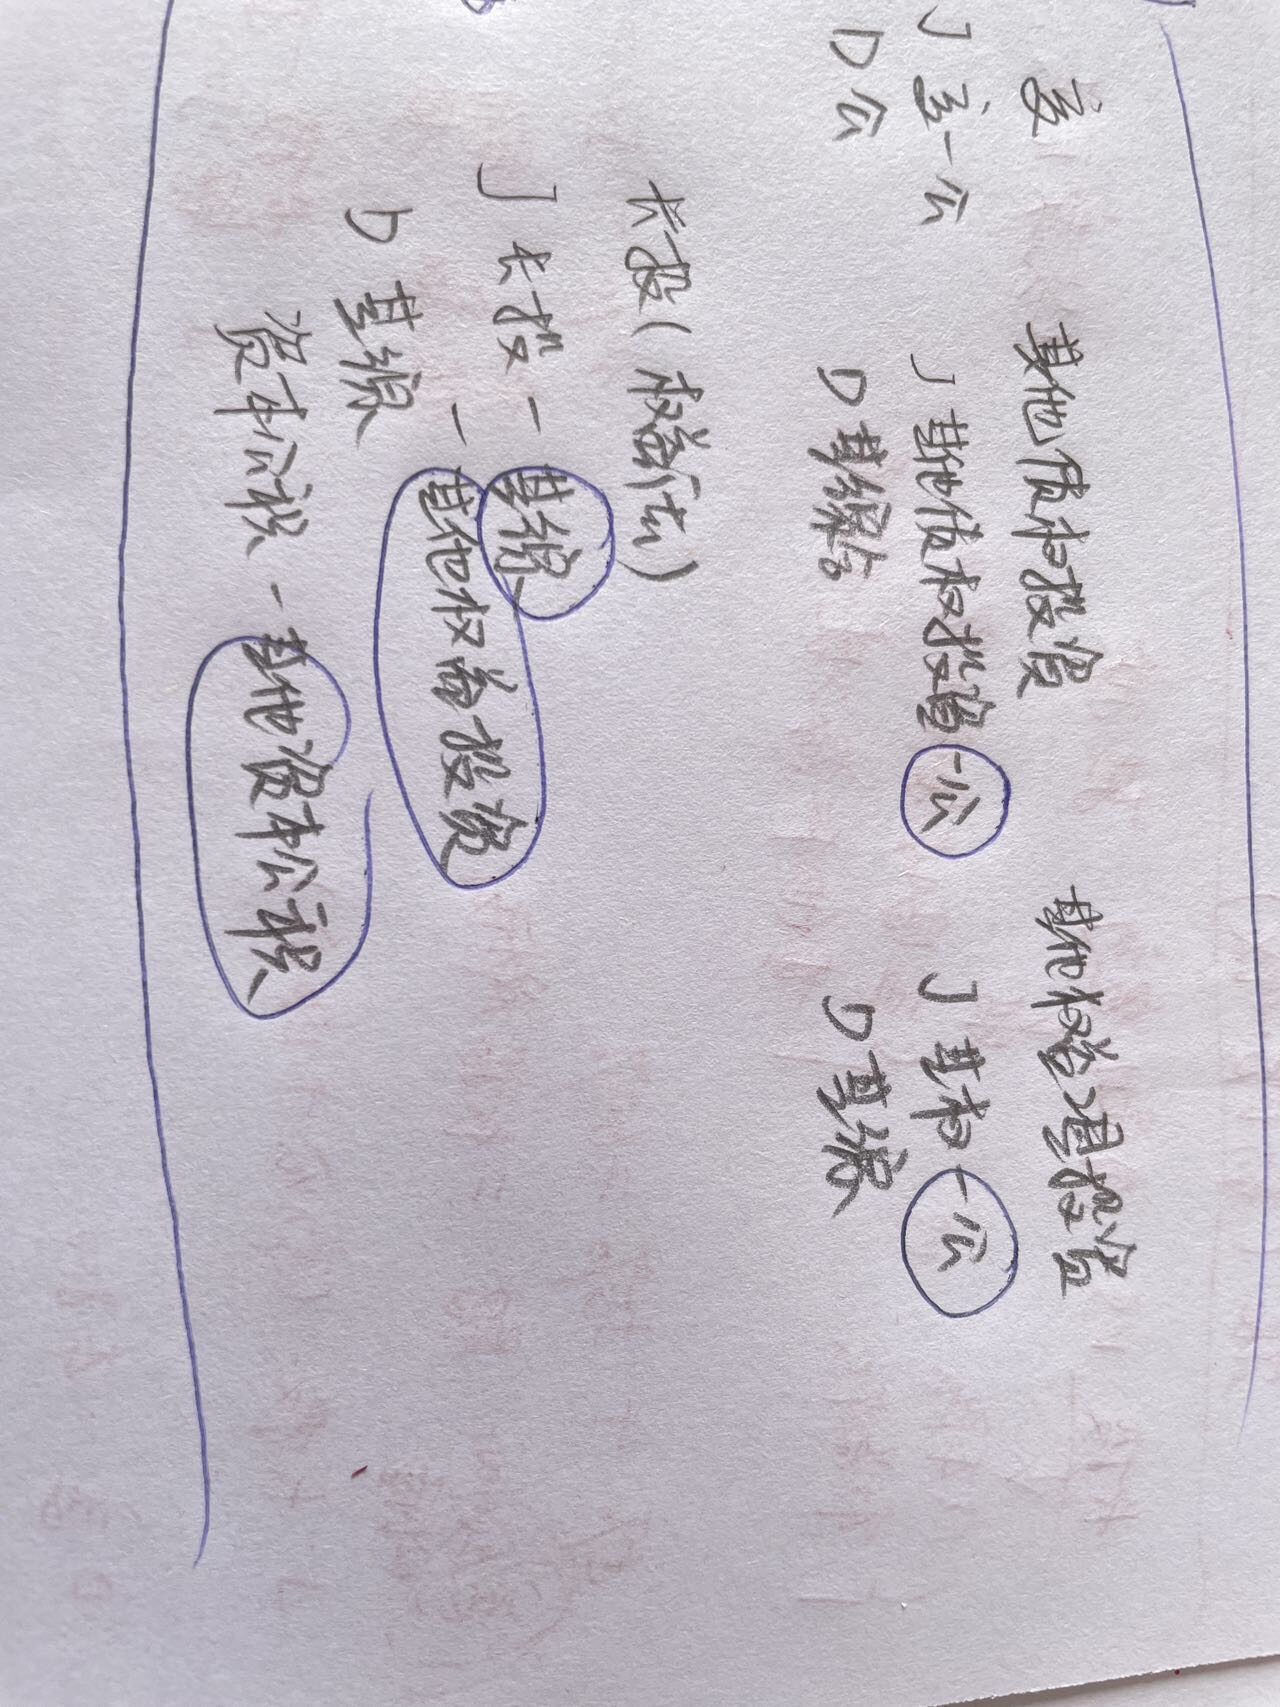 交
J 交一公
D 公
其他债权投资
J 其他债权投资 一公
D 其综
其他权益工具投资
J 其权 一公
D 其综
长投(权益法)
J 长投 一 其综
一 其他权益投资
D 其综
资本公积 一 其他资本公积